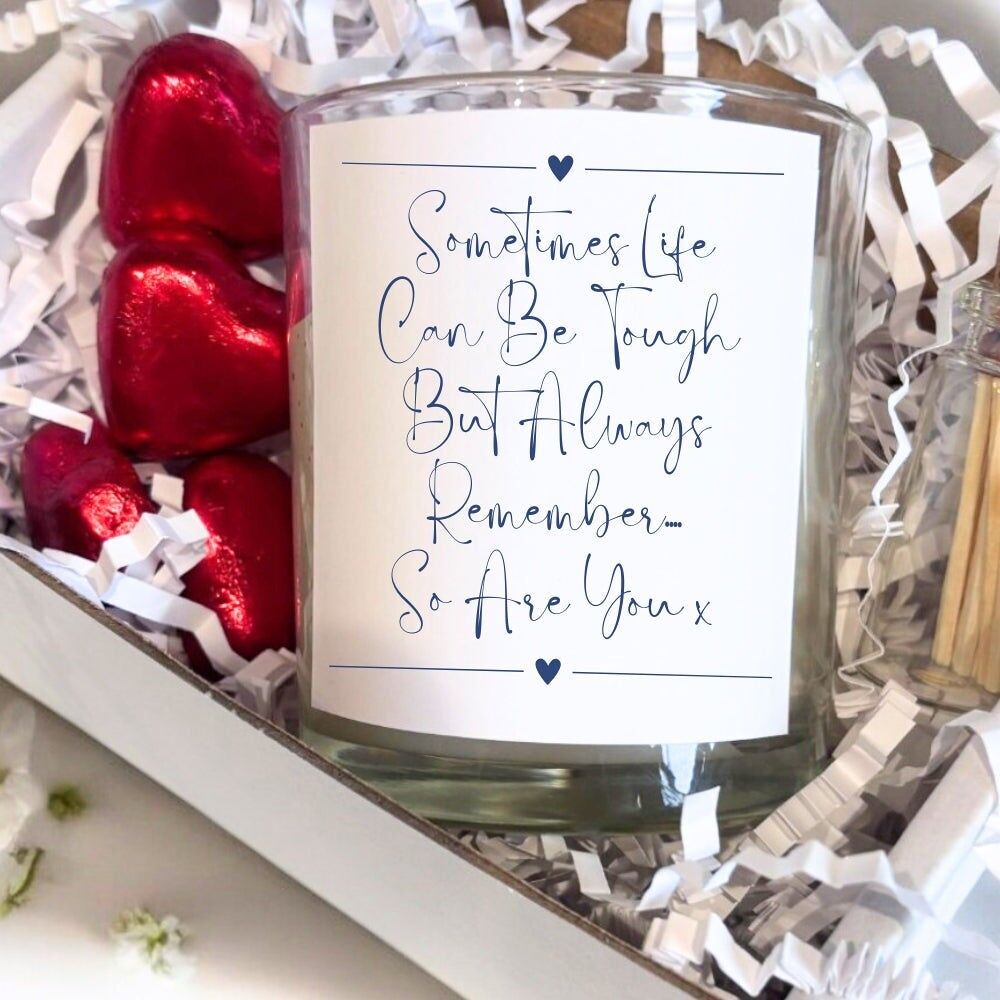 Sometimes Life
Can Be Tough
But Always
Remember....
So Are You x